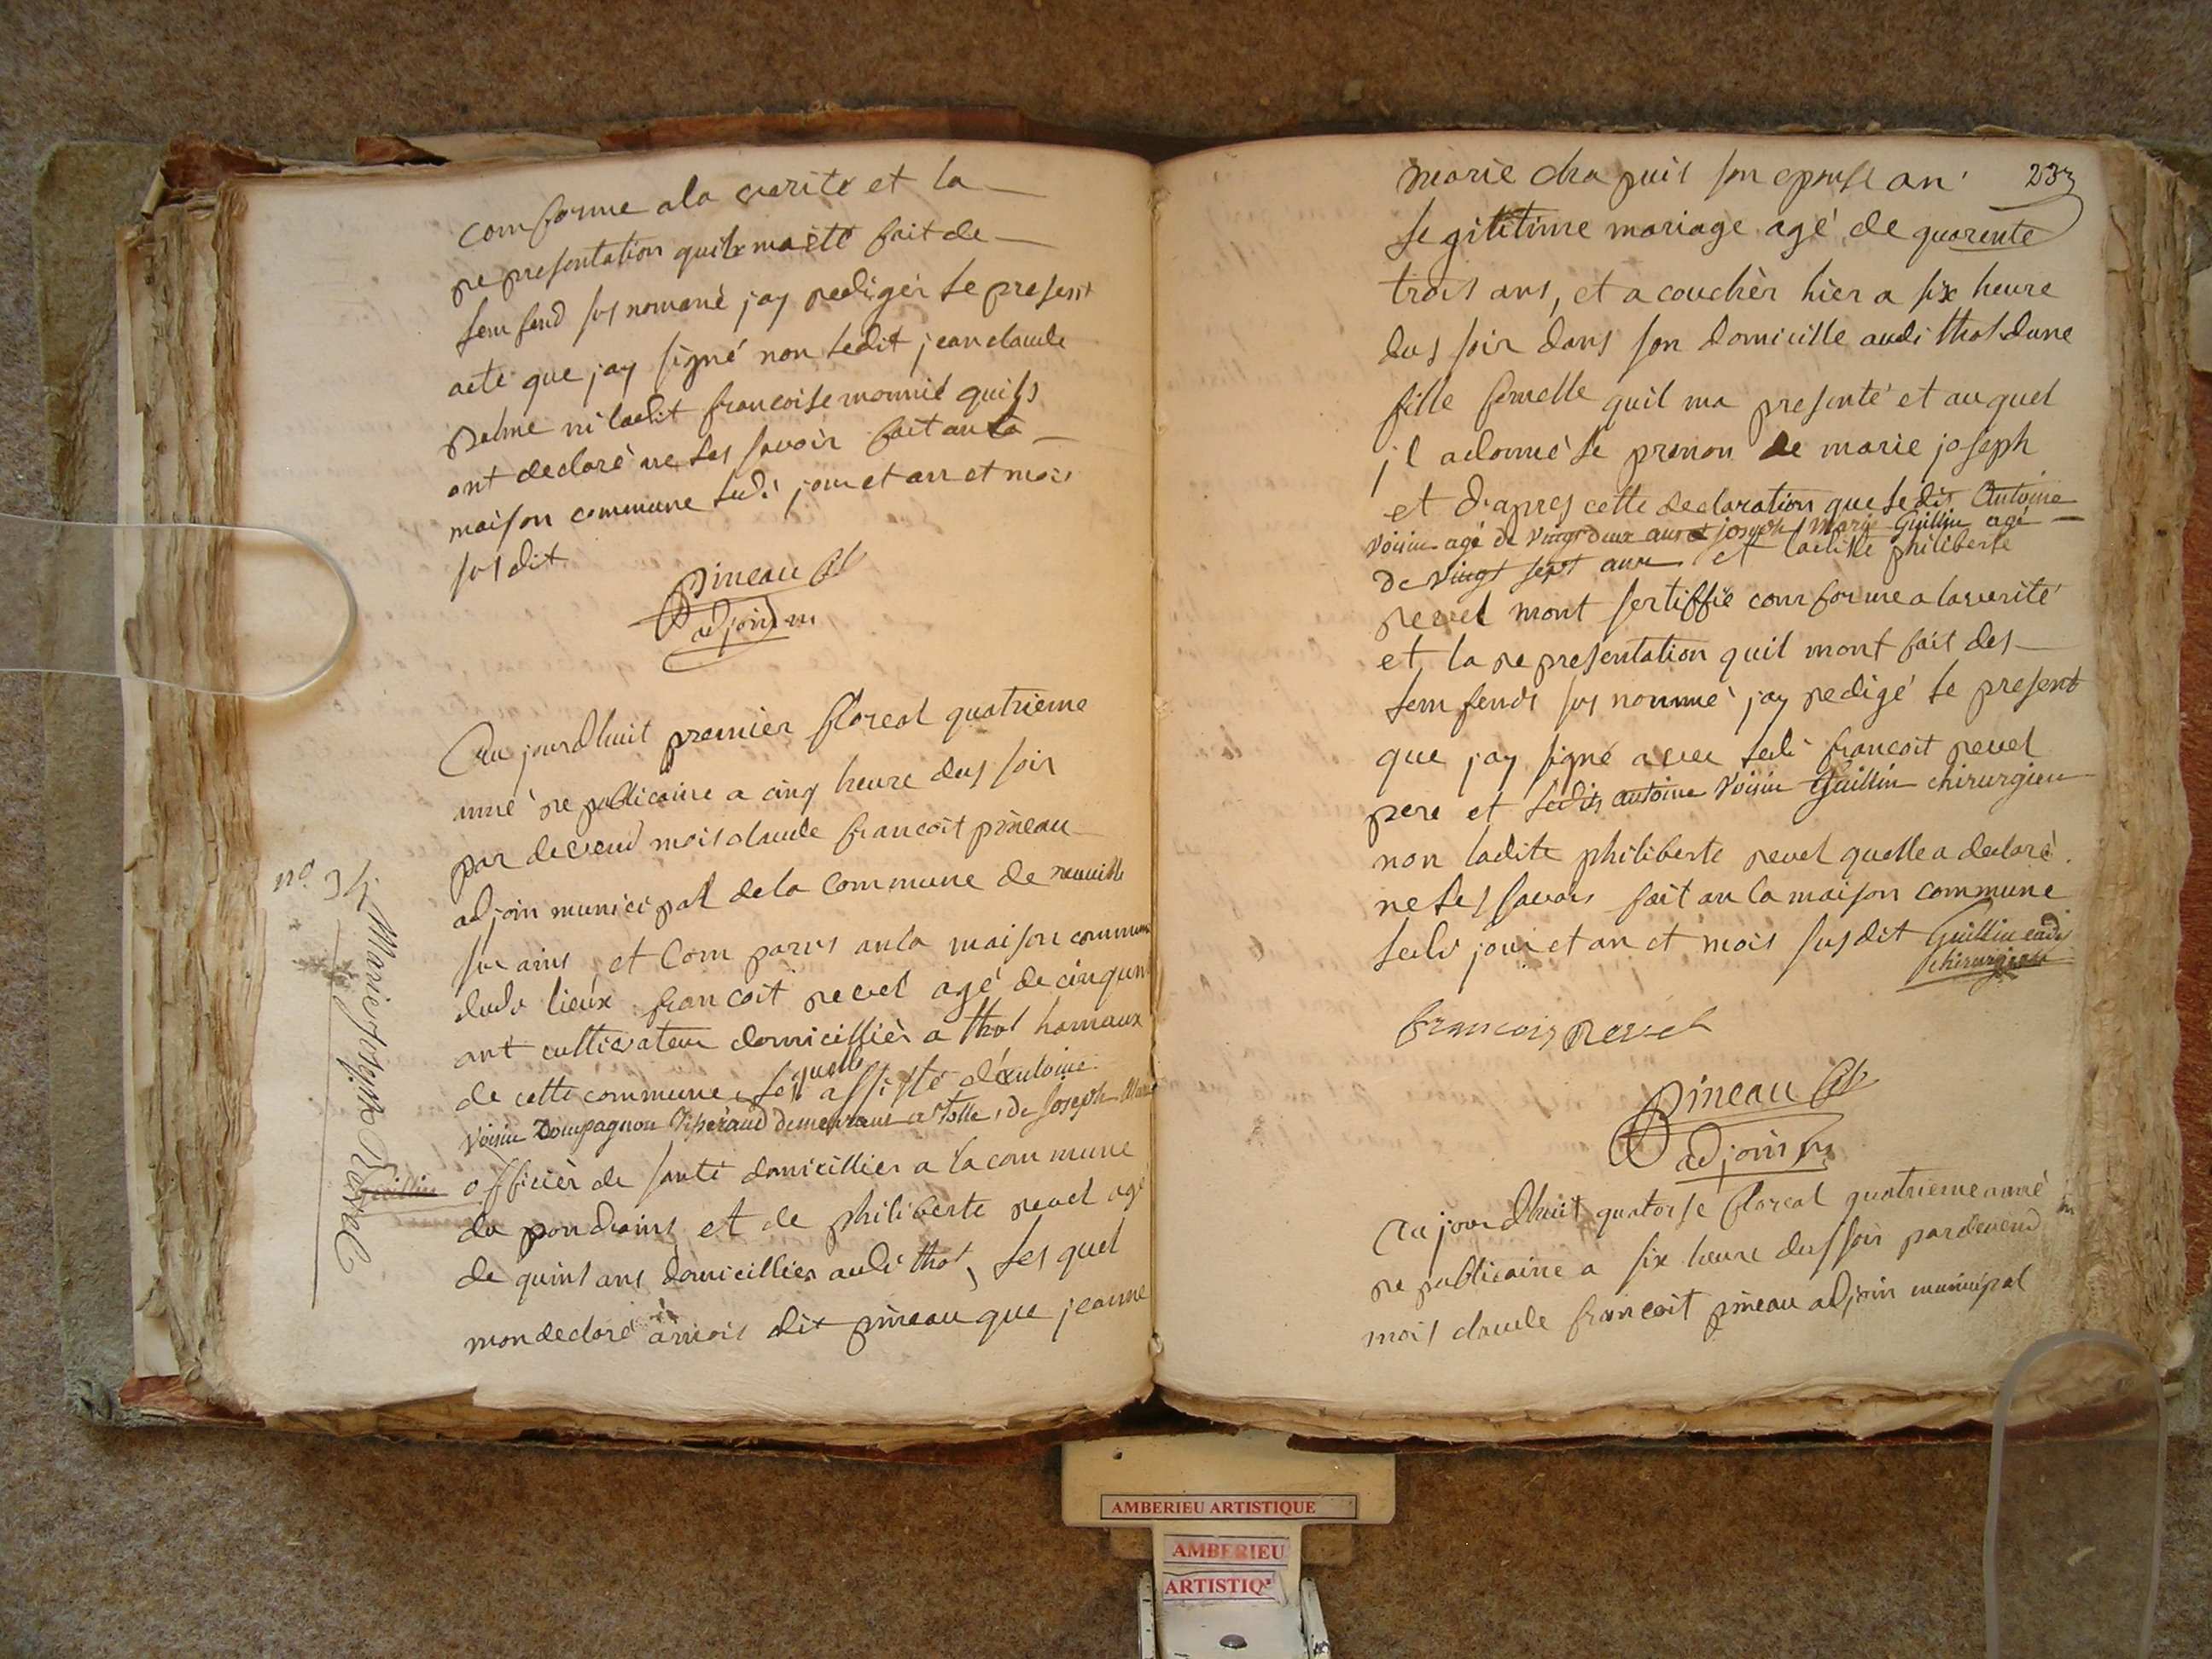 conforme ala verite et la
representation quils ma été fait de
lenfend sus nommé jay rediger le present
acte que jay signé non ledit jean claude
palme ni ladit francoise monnié quils
ont declaré ne les savoir fait an la
maison commune ludi jour et an et mois
susdit
pineau
adjoind m
Au jourdhuit premier floreal quatrieme
anné republicaine a cinq heure dus soir
par devend mois claude francoit pineau
adjoin municipal dela commune de neuville
sur ains et Com parus anla maison commune
dudi lieux francoit revel agé de cinquen
ant cultivateur domicillièr a thol hamaux
de cette commune, lequelle assisté dantoine
Voisin Compagnon Tisserand demeurant a Tolle, de Joseph Marie
Guillin officièr de santé domicillier a la commune
du pondains et de philiberte revel agé
de quins ans domicillièr audi thol, les quel
mon declaré a mois dit pineau que jeanne
no. 34
Marie josephe Revel
233
marie chapuis son epouse an
legititime mariage agé de quarente
trois ans, et a couchèr hier a six heure
dus soir dans son domicille audi thol dune
fille femelle quil ma presenté et auquel
il adonné le prenon de marie joseph
et d'apres cette declaration que ledit Antoine
Voisin agé de Vingt deux ans et joseph Marie Guillin agé
de Vingt sept ans et ladite philiberte
revel mont sertiffié comforme a la verité
et la representation quil mont fait des
lemfends sus nommé jay redigé le present
que jay signé avec ledi francoit revel
pere et ledits antoine Voisin Guillin chirurgien
non ladite philiberte revel quelle a declaré
ne les savoir fait an la maison commune
ludi jour et an et mois susdit Guillin cadi
chirurgien
francois revel
pineau
adjoin m
Au jourdhuit quatorse floreal quatrieme anné
republicaine a six heure dus soir pardevend
mois claude francoit pineau adjoin municipal
AMBERIEU ARTISTIQUE
AMBERIEU
ARTISTIQ